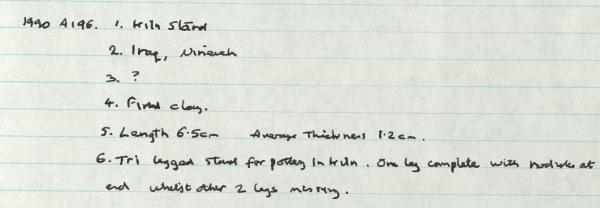 1990 A196. 1. Kiln Stand
2. Iraq, Nineveh
3. ?
4. Fired clay.
5. Length 6.5cm Average Thickness 1.2cm.
6. Tri legged stand for pottery in kiln. One leg complete with nodule at
end whilst other 2 legs missing.